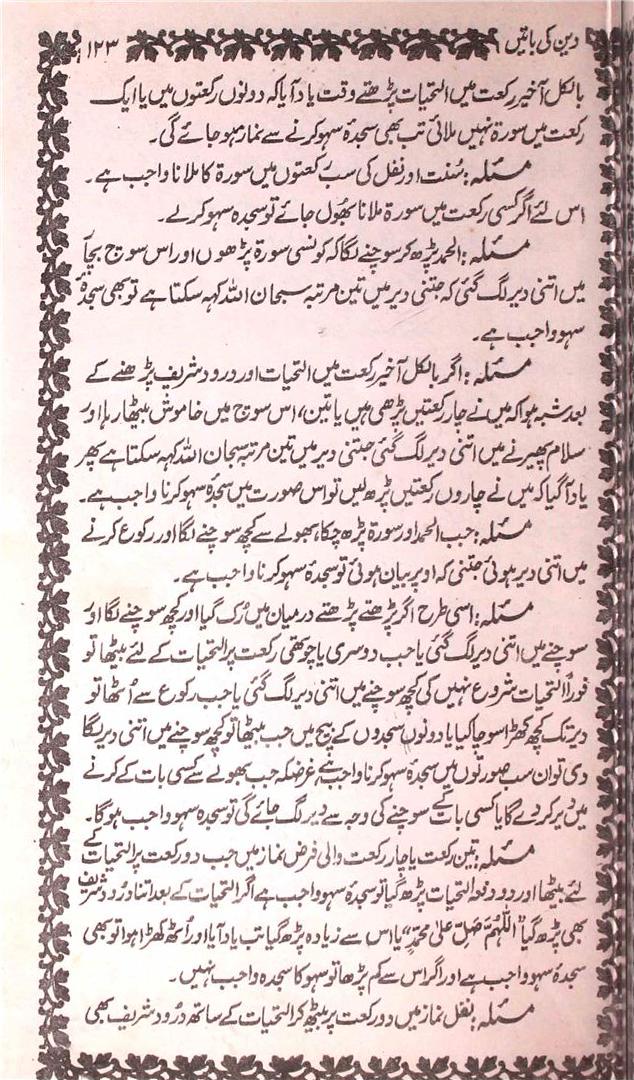 دین کی باتیں ۱۲۳
بالکل آخیر رکعت میں التحیات پڑھتے وقت یاد آیا کہ دونوں رکعتوں میں یا ایک
رکعت میں سورۃ نہیں ملائی تب بھی سجدۂ سہو کرنے سے نماز ہو جائے گی۔
مسئلہ: سُنت اور نفل کی سب رکعتوں میں سورۃ کا ملانا واجب ہے۔
اس لئے اگر کسی رکعت میں سورۃ ملانا بھُول جائے تو سجدہ سہو کرلے۔
مسئلہ: الحمد پڑھ کر سوچنے لگا کہ کونسی سورۃ پڑھوں اور اس سوچ بچار
میں اتنی دیر لگ گئی کہ جتنی دیر میں تین مرتبہ سبحان اللہ کہہ سکتا ہے تو بھی سجدۂ
سہو واجب ہے۔
مسئلہ: اگر بالکل آخیر رکعت میں التحیات اور درود شریف پڑھنے کے
بعد شبہ ہوا کہ میں نے چار رکعتیں پڑھی ہیں یا تین، اس سوچ میں خاموش بیٹھا رہا اور
سلام پھیرنے میں اتنی دیر لگ گئی جتنی دیر میں تین مرتبہ سبحان اللہ کہہ سکتا ہے پھر
یاد آگیا کہ میں نے چاروں رکعتیں پڑھ لیں تو اس صورت میں سجدۂ سہو کرنا واجب ہے۔
مسئلہ: جب الحمد اور سورۃ پڑھ چکا، بھولے سے کچھ سوچنے لگا اور رکوع کرنے
میں اتنی دیر ہوئی جتنی کہ اوپر بیان ہوئی تو سجدۂ سہو کرنا واجب ہے۔
مسئلہ: اسی طرح اگر پڑھتے پڑھتے درمیان میں رُک گیا اور کچھ سوچنے لگا اور
سوچنے میں اتنی دیر لگ گئی یا جب دوسری یا چوتھی رکعت پر التحیات کے لئے بیٹھا تو
فوراً التحیات شروع نہیں کی کچھ سوچنے میں اتنی دیر لگ گئی یا جب رکوع سے اُٹھا تو
دیر تک کچھ کھڑا سوچا کیا یا دونوں سجدوں کے بیچ میں جب بیٹھا تو کچھ سوچنے میں اتنی دیر لگا
دی تو ان سب صورتوں میں سجدۂ سہو کرنا واجب ہے، غرضکہ جب بھولے سے کسی بات کے کرنے
میں دیر کر دے گا یا کسی بات کے سوچنے کی وجہ سے دیر لگ جائے گی تو سجدہ سہو واجب ہوگا۔
مسئلہ: تین رکعت یا چار رکعت والی فرض نماز میں جب دو رکعت پر التحیات کے
لئے بیٹھا اور دو دفعہ التحیات پڑھ گیا تو سجدۂ سہو واجب ہے اگر التحیات کے بعد اتنا درُود شریف
بھی پڑھ گیا ”اَللّٰھُمَّ صَلِّ عَلیٰ مُحَمَّدٍ“ یا اس سے زیادہ پڑھ گیا تب یاد آیا اور اُٹھ کھڑا ہوا تو بھی
سجدۂ سہو واجب ہے اور اگر اس سے کم پڑھا تو سہو کا سجدہ واجب نہیں۔
مسئلہ: نفل نماز میں دو رکعت پر بیٹھ کر التحیات کے ساتھ درُود شریف بھی